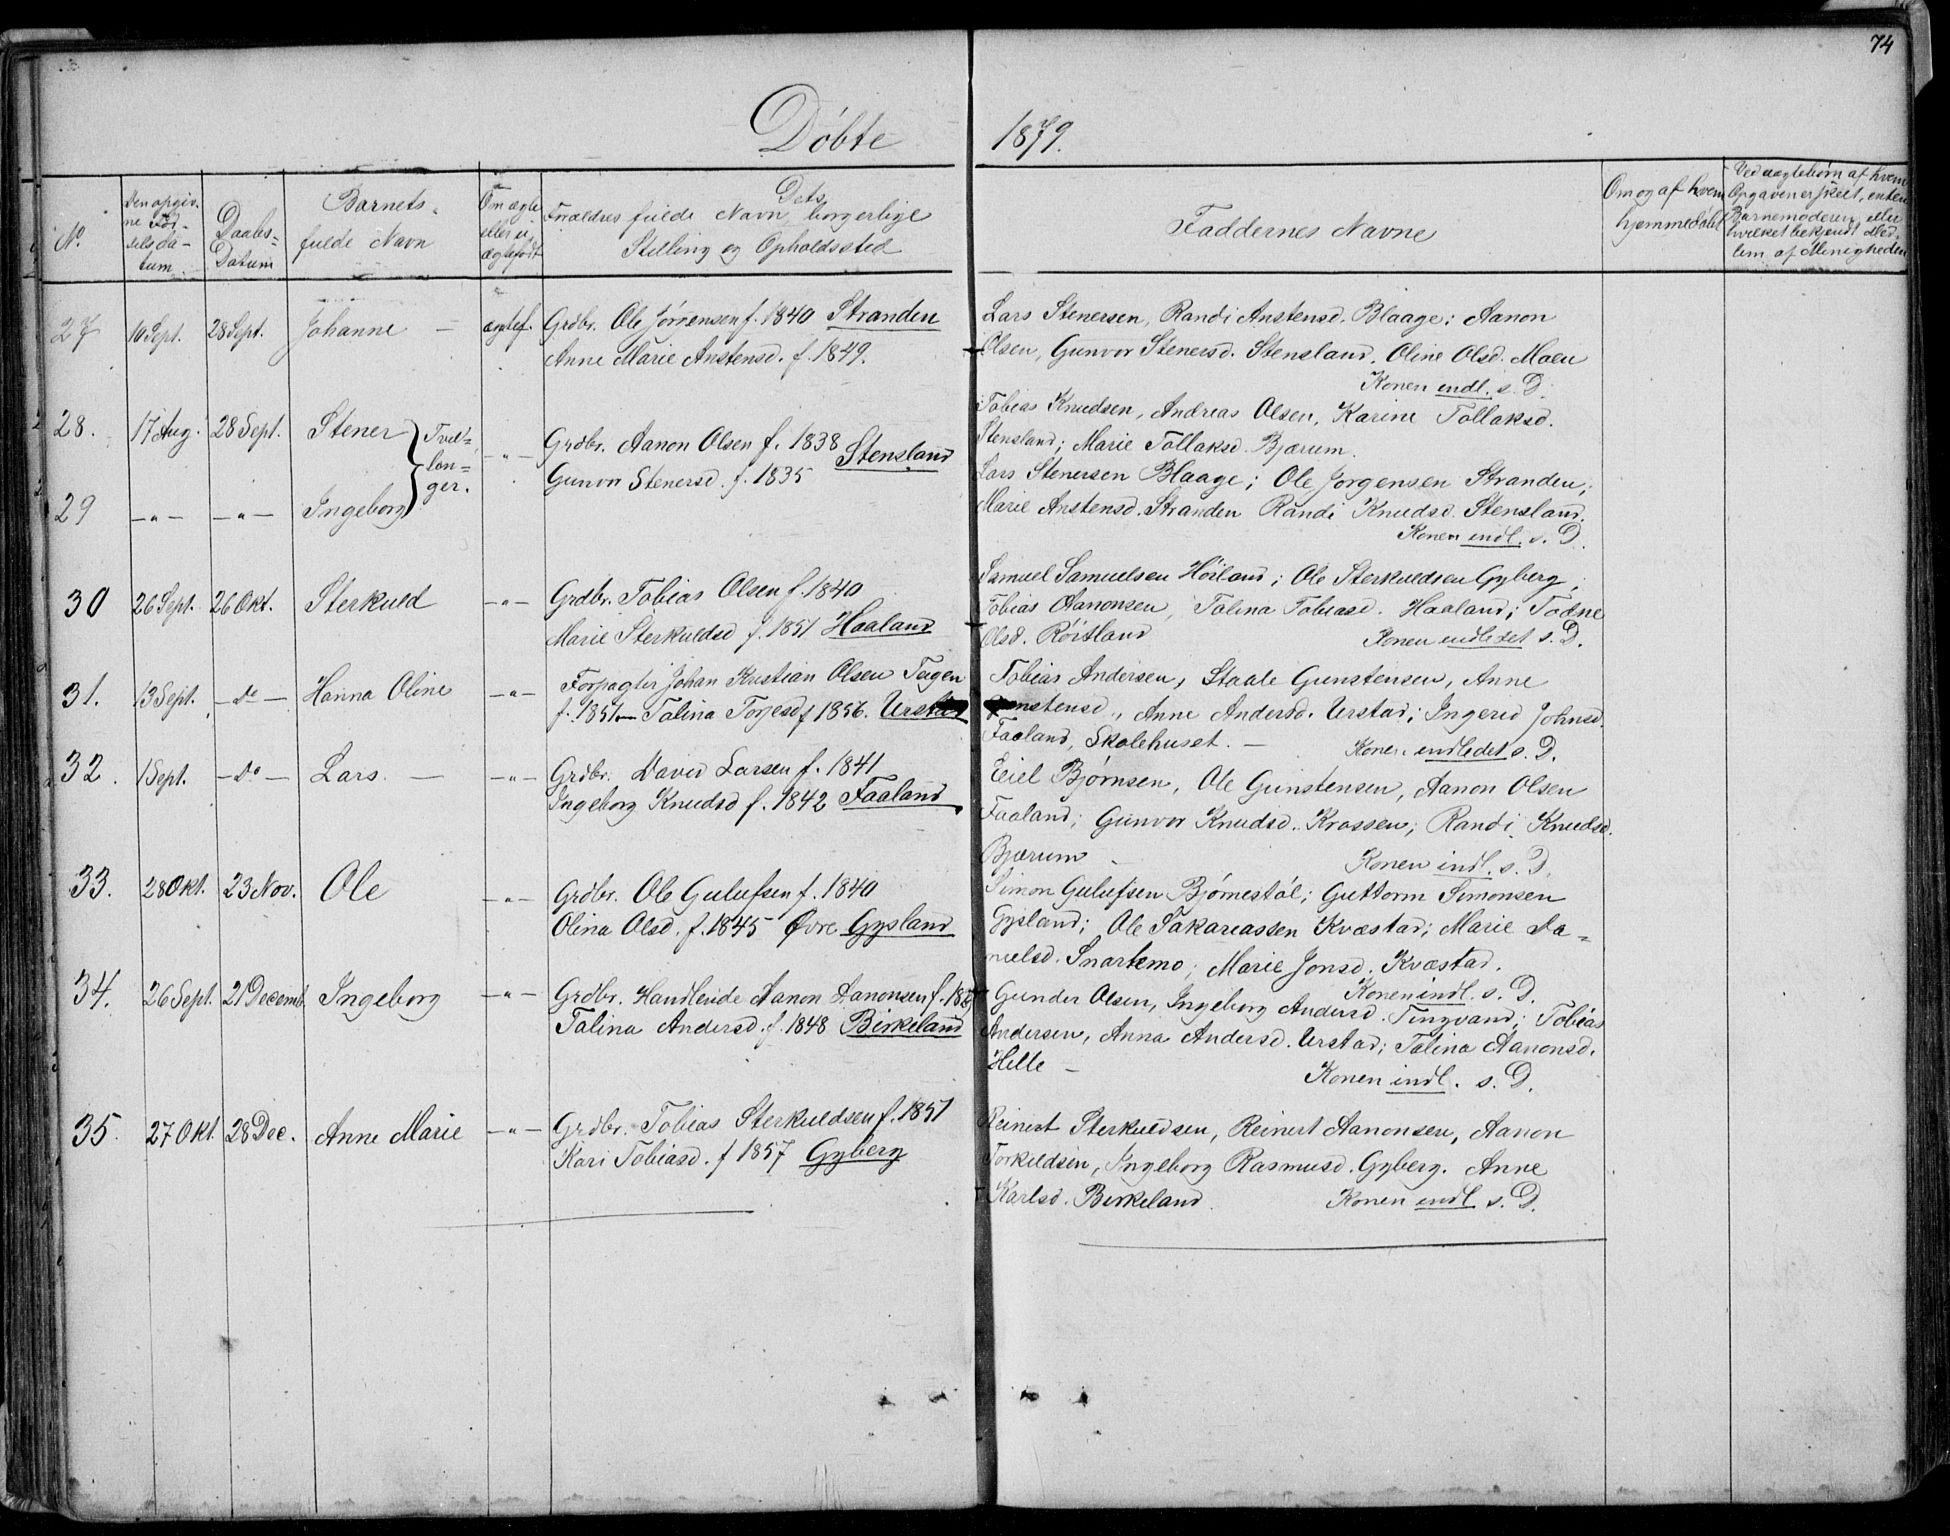 74
Døbte 1879.
No.
Den opgiv-
ne Fød-
selsda-
tum
Daabs-
Datum
Barnets
fulde Navn
Om ægte
eller u-
ægtefødt
Dets
Forældres fulde Navn, borgerlige
Stilling og Opholdssted
Faddernes Navne
Om og af hvem
hjemmedøbt
Ved uægtebørn af hvem
Opgaven er skeet, enten
Barnemoderen, eller
hvilket bekjendt Med-
lem af Menigheden
27 10 Sept. 28 Sept. Johanne — ægtef. Grdbr. Ole Jørrensen f. 1840 Stranden
Anne Marie Anstensd. f. 1849.
Lars Stenersen, Randi Anstensd. Blaage; Aanon
Olsen, Gunvor Stenersd. Stensland. Oline Olsd. Moen
Konen indl. s. D.
28. 17 Aug. 28 Sept. Stener Tvil-
lin-
ger.
-"- Grdbr. Aanon Olsen f. 1838
Gunvor Stenersd. f. 1835 Stensland
Tobias Knudsen, Andreas Olsen, Karine Tollaksd.
Stensland; Marie Tollaksd. Bjærum.
29 -"- -"- Ingeborg
Lars Stenersen Blaage; Ole Jørgensen Stranden;
Marie Anstensd. Stranden Randi Knudsd. Stensland.
Konen indl. s. D.
30 26 Sept. 26 Okt. Sterkuld -"- Grdbr. Tobias Olsen f. 1840
Marie Sterkuldsd f. 1851 Haaland
Samuel Samuelsen Höiland; Ole Sterkuldsen Gyberg;
Tobias Aanonsen, Talina Tobiasd. Haaland; Todne
Olsd. Röitland Konen indledet s. D.
31. 13 Sept. -do- Hanna Oline -"- Forpagter Johan Kristian Olsen Tagen
f. 1851 — Talina Torjesd f 1856. Urstad
Tobias Andersen, Staale Gunstensen, Anne
Gunstensd., Anne Andersd. Urstad; Ingerid Johnsd.
Faaland, Skolehuset. — Konen indledet s. D.
32. 1 Sept. -do- Lars — -"- Grdbr. David Larsen f. 1841
Ingeborg Knudsd f. 1842 Faaland
Eiel Bjørnsen, Ole Gunstensen, Aanon Olsen
Faaland; Gunvor Knudsd. Krossen; Randi Knudsd.
Bjærum — Konen indl. s. D.
33. 28 Okt. 23 Nov. Ole -"- Grdbr. Ole Gulufsen f. 1840
Olina Olsd. f. 1845 Øvre Gysland
Simon Gulufsen Bjørnestøl; Guttorm Simonsen
Gysland; Ole Sakariassen Kvæstad; Marie Da-
nielsd. Snartemo; Marie Jonsd. Kvæstad.
Konen indl. s. D.
34. 26 Sept. 21 Decemb. Ingeborg -"- Grdbr. Handlende Aanon Aanonsen f.
Talina Andersd. f. 1848 Birkeland
Gunder Olsen, Ingeborg Andersd. Tingvand; Tobias
Andersen, Anna Andersd. Urstad; Talina Aanonsd.
Helle — Konen indl. s. D.
35. 27 Okt. 28 Dec. Anne Marie -"- Grdbr. Tobias Sterkuldsen f. 1851
Kari Tobiasd. f 1857 Gyberg
Reinert Sterkuldsen, Reinert Aanonsen, Aanon
Torkildsen, Ingeborg Rasmusd. Gyberg. Anne
Karlsd. Birkeland. Konen indl s. D.